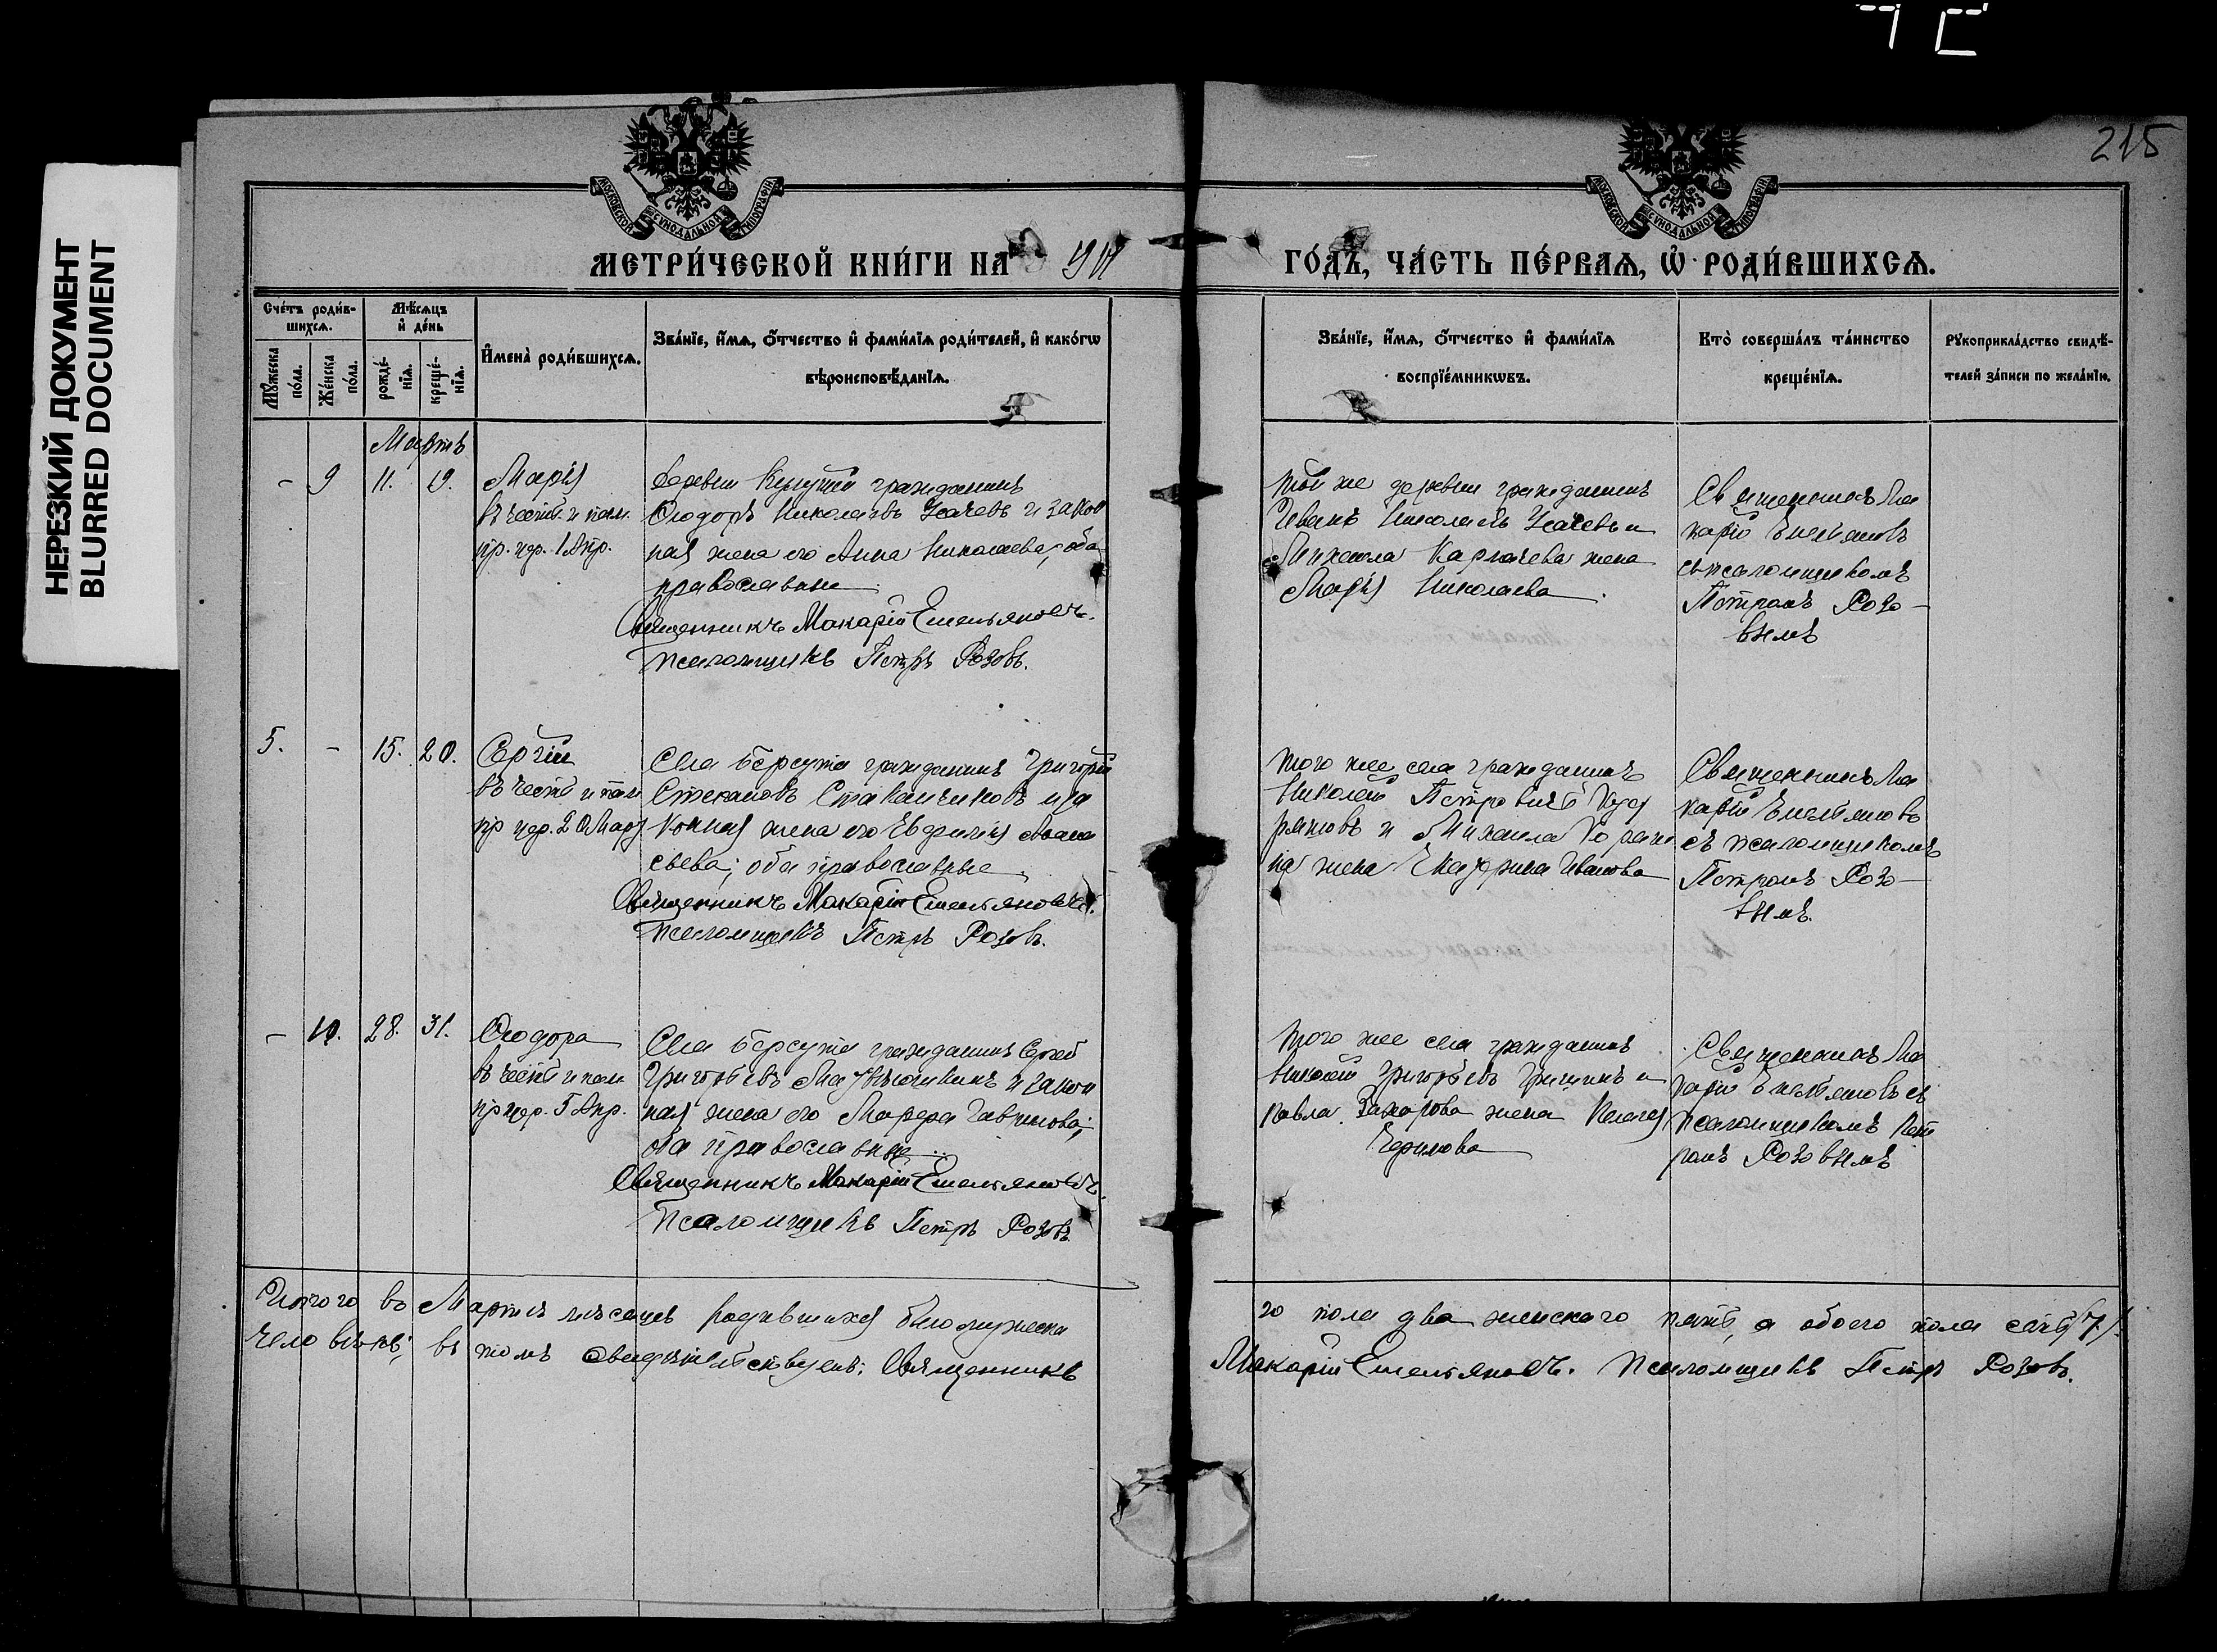 215
НЕРЕЗКИЙ ДОКУМЕНТ
BLURRED DOCUMENT
МОСКОВСКОЙ СѴНОДАЛЬНОЙ ТИПОГРАФІИ
МОСКОВСКОЙ СѴНОДАЛЬНОЙ ТИПОГРАФІИ
МЕТРИ́ЧЕСКОЙ КНИ́ГИ НА
ГО́ДЪ, ЧА́СТЬ ПЕ́РВАѦ, Ѡ҆ РОДИ́ВШИХСѦ.
Сче́тъ роди́в-
шихсѧ.
Мꙋ́жеска
по́ла.
Же́нска
по́ла.
Мѣ́сѧцъ
и҆ де́нь
рожде́-
нїѧ.
креще́-
нїѧ.
И҆мена̀ роди́вшихсѧ.
Зва́нїе, и҆́мѧ, ѻ҆́тчество и҆ фами́лїѧ роди́телей, и҆ како́гѡ
вѣроисповѣ́данїѧ.
Зва́нїе, и҆́мѧ, ѻ҆́тчество и҆ фами́лїѧ
воспрїе́мникѡвъ.
Кто̀ соверша́лъ та́инство
креще́нїѧ.
Рꙋкоприкла́дство свидѣ́-
телей за́писи по жела́нїю.
Мартъ
- 9 11. 19.
Марія
въ честь и пам.
пр. 1 Апр.
деревни гражданинъ
Ѳіодоръ Николаевъ Усачевъ и закон
ная жена его Анна Николаева, оба
православные
Священникъ Макарій Емельяновъ.
Псаломщикъ Петръ Розовъ.
той же деревни гражданинъ
Иванъ Николаевъ Усачевъ и
Михаила жена
Марія Николаева.
Священникъ Ма
карій Емельяновъ
съ псаломщикомъ
Петромъ Розо-
вымъ
5. - 15. 20.
Сергій
въ честь и пам
пр 20 Мар
Села Берсута гражданинъ Григорій
Степановъ Стаканчиковъ и за
конная жена его Евдокія Аѳана
сьева; оба православные
Священникъ Макарій Емельяновъ.
Псаломщикъ Петръ Розовъ.
того же села гражданинъ
Николай Петровичъ
и Михаила
на жена Екатерина Иванова
Священникъ Ма
карій Емельяновъ
съ псаломщикомъ
Петромъ Розо-
вымъ.
- 10. 28. 31.
Ѳіодора
въ честь и пам
пр 5 Апр.
Села Берсута гражданинъ Сергѣй
Григорьевъ и закон
ная жена его Марѳа Гаврилова;
оба православные
Священникъ Макарій Емельяновъ.
Псаломщикъ Петръ Розовъ.
того же села гражданинъ
Николай Григорьевъ и
Павла Захарова жена Пелагея
Священникъ Ма
карій Емельяновъ съ
псаломщикомъ Пет
ромъ Розовымъ
Итого въ Мартѣ мѣсяцѣ родившихся было мужеска
го пола два женскаго пять, а обоего пола семь /7/.
человѣкъ; въ томъ свидѣтельствуемъ: Священникъ
Макарій Емельяновъ. Псаломщикъ Петръ Розовъ.